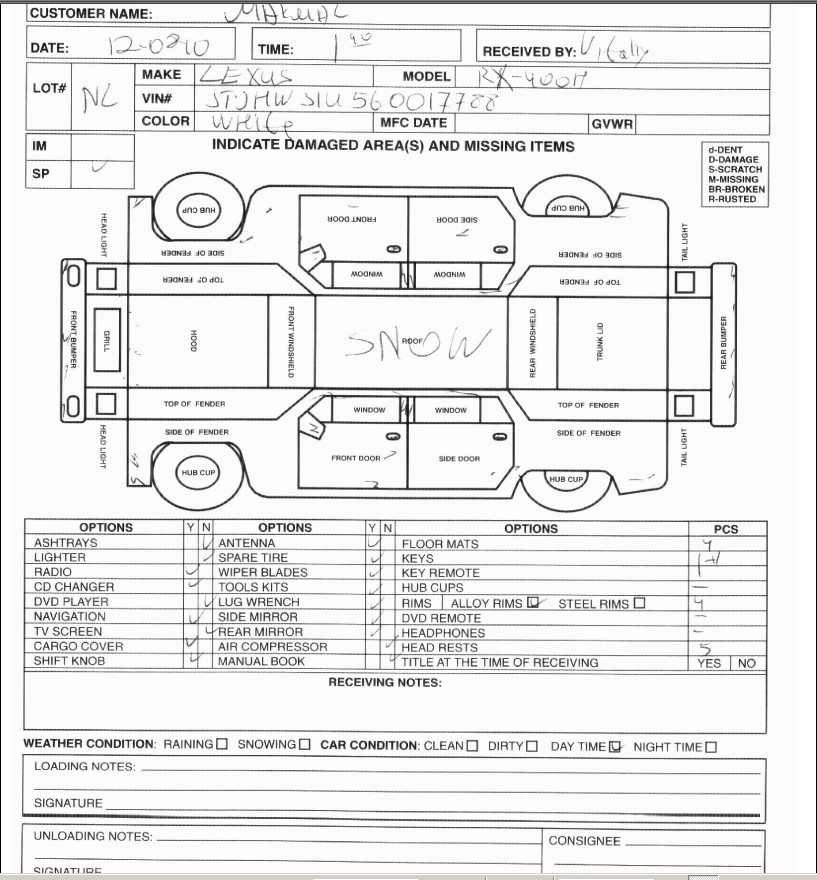 CUSTOMER NAME:
DATE: 12-0210 TIME: 1 40 RECEIVED BY: Vitaliy
LOT# NL
MAKE LEXUS MODEL RX-400H
VIN# JTJHW31U560017788
COLOR WHite MFC DATE GVWR
IM
SP
INDICATE DAMAGED AREA(S) AND MISSING ITEMS
d-DENT
D-DAMAGE
S-SCRATCH
M-MISSING
BR-BROKEN
R-RUSTED
HUB CUP HUB CUP
HEAD LIGHT FRONT DOOR SIDE DOOR TAIL LIGHT
SIDE OF FENDER SIDE OF FENDER
TOP OF FENDER WINDOW WINDOW TOP OF FENDER
FRONT BUMPER GRILL HOOD FRONT WINDSHIELD ROOF SNOW REAR WINDSHIELD TRUNK LID REAR BUMPER
TOP OF FENDER WINDOW WINDOW TOP OF FENDER
SIDE OF FENDER SIDE OF FENDER
HEAD LIGHT FRONT DOOR SIDE DOOR TAIL LIGHT
HUB CUP HUB CUP
OPTIONS Y N OPTIONS Y N OPTIONS PCS
ASHTRAYS ANTENNA FLOOR MATS 4
LIGHTER SPARE TIRE KEYS
RADIO WIPER BLADES KEY REMOTE
CD CHANGER TOOLS KITS HUB CUPS –
DVD PLAYER LUG WRENCH RIMS ALLOY RIMS STEEL RIMS 4
NAVIGATION SIDE MIRROR DVD REMOTE –
TV SCREEN REAR MIRROR HEADPHONES -
CARGO COVER AIR COMPRESSOR HEAD RESTS 5
SHIFT KNOB MANUAL BOOK TITLE AT THE TIME OF RECEIVING YES NO
RECEIVING NOTES:
WEATHER CONDITION: RAINING SNOWING CAR CONDITION: CLEAN DIRTY DAY TIME NIGHT TIME
LOADING NOTES:
SIGNATURE
UNLOADING NOTES: CONSIGNEE
SIGNATURE